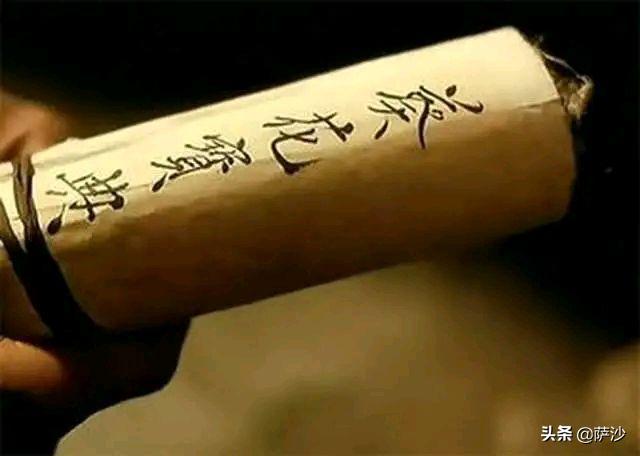 葵花寶典
头条 @萨沙